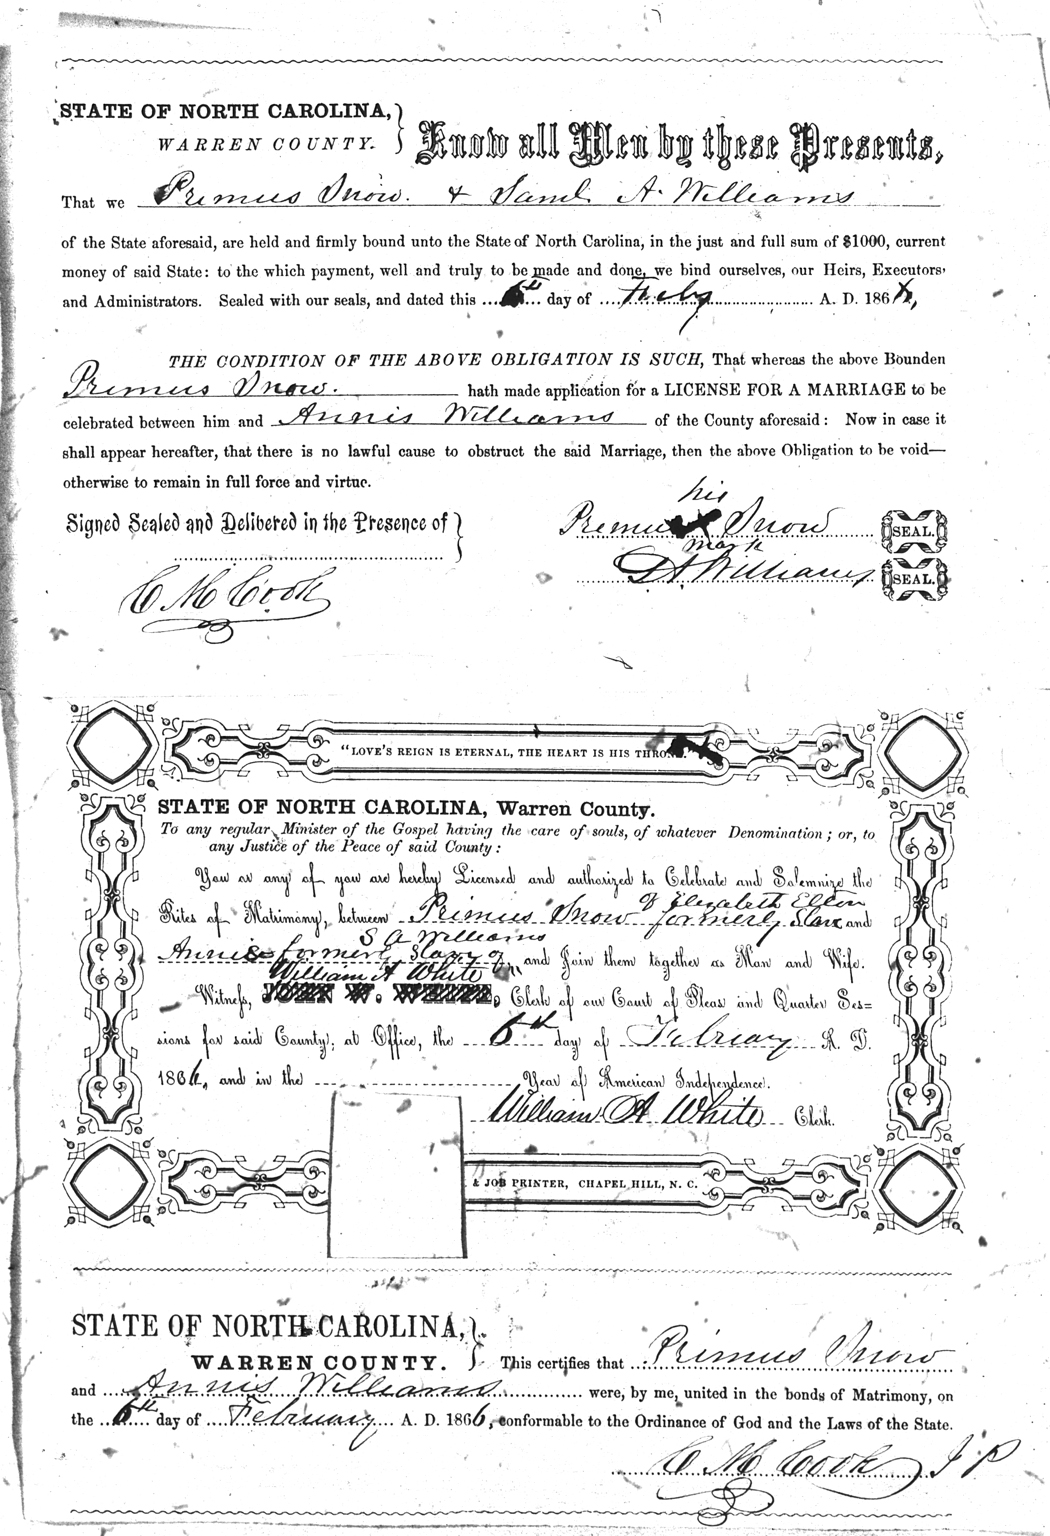 STATE OF NORTH CAROLINA,
WARREN COUNTY.
Know all Men by these Presents,
That we Primus Snow. & Saml. A. Williams
of the State aforesaid, are held and firmly bound unto the State of North Carolina, in the just and full sum of $1000, current
money of said State: to the which payment, well and truly to be made and done, we bind ourselves, our Heirs, Executors,
and Administrators. Sealed with our seals, and dated this 6th day of Feby A. D. 1866,
THE CONDITION OF THE ABOVE OBLIGATION IS SUCH, That whereas the above Bounden
Primus Snow. hath made application for a LICENSE FOR A MARRIAGE to be
celebrated between him and Annis Williams of the County aforesaid: Now in case it
shall appear hereafter, that there is no lawful cause to obstruct the said Marriage, then the above Obligation to be void—
otherwise to remain in full force and virtue.
his
Signed Sealed and Delibered in the Presence of
Primus X Snow SEAL.
mark
S A Williams SEAL.
C M Cook
"LOVE'S REIGN IS ETERNAL, THE HEART IS HIS THRONE."
STATE OF NORTH CAROLINA, Warren County.
To any regular Minister of the Gospel having the care of souls, of whatever Denomination; or, to
any Justice of the Peace of said County:
You or any of you are hereby Licensed and authorized to Celebrate and Solemnize the
of Elizabeth Elton
Rites of Matrimony, between Primus Snow formerly Slave and
S A Williams
Annis formerly Slave of, and Join them together as Man and Wife.
William A White
Witness, JOHN W. WHITE, Clerk of our Court of Pleas and Quarter Ses=
sions for said County, at Office, the 6th day of February A. D.
1866, and in the Year of American Independence.
William A White Clerk.
& JOB PRINTER, CHAPEL HILL, N. C.
STATE OF NORTH CAROLINA,
WARREN COUNTY.
This certifies that Primus Snow
and Annis Williams were, by me, united in the bonds of Matrimony, on
the 6th day of February A. D. 1866, conformable to the Ordinance of God and the Laws of the State.
C M Cook J P